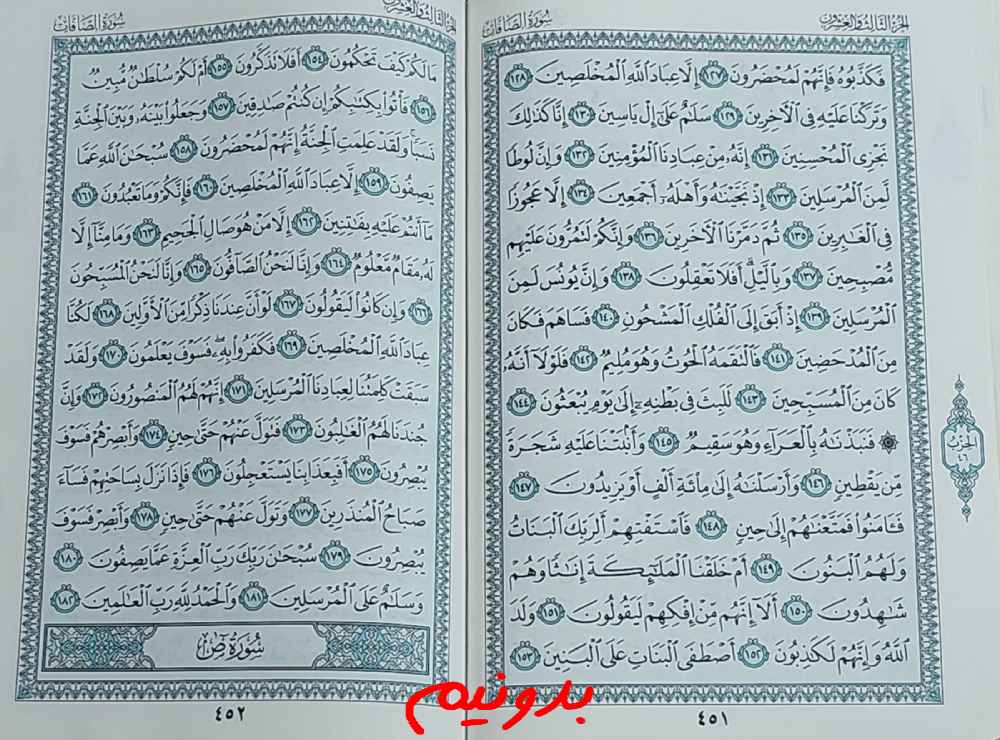 الجزء الثالث والعشرون
سورة الصافات
فَكَذَّبُوهُ فَإِنَّهُمْ لَمُحْضَرُونَ ١٢٧ إِلَّا عِبَادَ اللَّهِ الْمُخْلَصِينَ ١٢٨
وَتَرَكْنَا عَلَيْهِ فِي الْآخِرِينَ ١٢٩ سَلَامٌ عَلَىٰ إِلْ يَاسِينَ ١٣٠ إِنَّا كَذَٰلِكَ
نَجْزِي الْمُحْسِنِينَ ١٣١ إِنَّهُ مِنْ عِبَادِنَا الْمُؤْمِنِينَ ١٣٢ وَإِنَّ لُوطًا
لَّمِنَ الْمُرْسَلِينَ ١٣٣ إِذْ نَجَّيْنَاهُ وَأَهْلَهُ أَجْمَعِينَ ١٣٤ إِلَّا عَجُوزًا
فِي الْغَابِرِينَ ١٣٥ ثُمَّ دَمَّرْنَا الْآخَرِينَ ١٣٦ وَإِنَّكُمْ لَتَمُرُّونَ عَلَيْهِم
مُّصْبِحِينَ ١٣٧ وَبِاللَّيْلِ أَفَلَا تَعْقِلُونَ ١٣٨ وَإِنَّ يُونُسَ لَمِنَ
الْمُرْسَلِينَ ١٣٩ إِذْ أَبَقَ إِلَى الْفُلْكِ الْمَشْحُونِ ١٤٠ فَسَاهَمَ فَكَانَ
مِنَ الْمُدْحَضِينَ ١٤١ فَالْتَقَمَهُ الْحُوتُ وَهُوَ مُلِيمٌ ١٤٢ فَلَوْلَا أَنَّهُ
كَانَ مِنَ الْمُسَبِّحِينَ ١٤٣ لَلَبِثَ فِي بَطْنِهِ إِلَىٰ يَوْمِ يُبْعَثُونَ ١٤٤
۞ فَنَبَذْنَاهُ بِالْعَرَاءِ وَهُوَ سَقِيمٌ ١٤٥ وَأَنبَتْنَا عَلَيْهِ شَجَرَةً
مِّن يَقْطِينٍ ١٤٦ وَأَرْسَلْنَاهُ إِلَىٰ مِائَةِ أَلْفٍ أَوْ يَزِيدُونَ ١٤٧
فَآمَنُوا فَمَتَّعْنَاهُمْ إِلَىٰ حِينٍ ١٤٨ فَاسْتَفْتِهِمْ أَلِرَبِّكَ الْبَنَاتُ
وَلَهُمُ الْبَنُونَ ١٤٩ أَمْ خَلَقْنَا الْمَلَائِكَةَ إِنَاثًا وَهُمْ
شَاهِدُونَ ١٥٠ أَلَا إِنَّهُم مِّنْ إِفْكِهِمْ لَيَقُولُونَ ١٥١ وَلَدَ
اللَّهُ وَإِنَّهُمْ لَكَاذِبُونَ ١٥٢ أَصْطَفَى الْبَنَاتِ عَلَى الْبَنِينَ ١٥٣
الحزب
٤٦
٤٥١
الجزء الثالث والعشرون
سورة الصافات
مَا لَكُمْ كَيْفَ تَحْكُمُونَ ١٥٤ أَفَلَا تَذَكَّرُونَ ١٥٥ أَمْ لَكُمْ سُلْطَانٌ مُّبِينٌ
١٥٦ فَأْتُوا بِكِتَابِكُمْ إِن كُنتُمْ صَادِقِينَ ١٥٧ وَجَعَلُوا بَيْنَهُ وَبَيْنَ الْجِنَّةِ
نَسَبًا وَلَقَدْ عَلِمَتِ الْجِنَّةُ إِنَّهُمْ لَمُحْضَرُونَ ١٥٨ سُبْحَانَ اللَّهِ عَمَّا
يَصِفُونَ ١٥٩ إِلَّا عِبَادَ اللَّهِ الْمُخْلَصِينَ ١٦٠ فَإِنَّكُمْ وَمَا تَعْبُدُونَ ١٦١
مَا أَنتُمْ عَلَيْهِ بِفَاتِنِينَ ١٦٢ إِلَّا مَنْ هُوَ صَالِ الْجَحِيمِ ١٦٣ وَمَا مِنَّا إِلَّا
لَهُ مَقَامٌ مَّعْلُومٌ ١٦٤ وَإِنَّا لَنَحْنُ الصَّافُّونَ ١٦٥ وَإِنَّا لَنَحْنُ الْمُسَبِّحُونَ
١٦٦ وَإِن كَانُوا لَيَقُولُونَ ١٦٧ لَوْ أَنَّ عِندَنَا ذِكْرًا مِّنَ الْأَوَّلِينَ ١٦٨ لَكُنَّا
عِبَادَ اللَّهِ الْمُخْلَصِينَ ١٦٩ فَكَفَرُوا بِهِ فَسَوْفَ يَعْلَمُونَ ١٧٠ وَلَقَدْ
سَبَقَتْ كَلِمَتُنَا لِعِبَادِنَا الْمُرْسَلِينَ ١٧١ إِنَّهُمْ لَهُمُ الْمَنصُورُونَ ١٧٢ وَإِنَّ
جُندَنَا لَهُمُ الْغَالِبُونَ ١٧٣ فَتَوَلَّ عَنْهُمْ حَتَّىٰ حِينٍ ١٧٤ وَأَبْصِرْهُمْ فَسَوْفَ
يُبْصِرُونَ ١٧٥ أَفَبِعَذَابِنَا يَسْتَعْجِلُونَ ١٧٦ فَإِذَا نَزَلَ بِسَاحَتِهِمْ فَسَاءَ
صَبَاحُ الْمُنذَرِينَ ١٧٧ وَتَوَلَّ عَنْهُمْ حَتَّىٰ حِينٍ ١٧٨ وَأَبْصِرْ فَسَوْفَ
يُبْصِرُونَ ١٧٩ سُبْحَانَ رَبِّكَ رَبِّ الْعِزَّةِ عَمَّا يَصِفُونَ ١٨٠
وَسَلَامٌ عَلَى الْمُرْسَلِينَ ١٨١ وَالْحَمْدُ لِلَّهِ رَبِّ الْعَالَمِينَ ١٨٢
سُورَةُ صٓ
٤٥٢
بدونیم